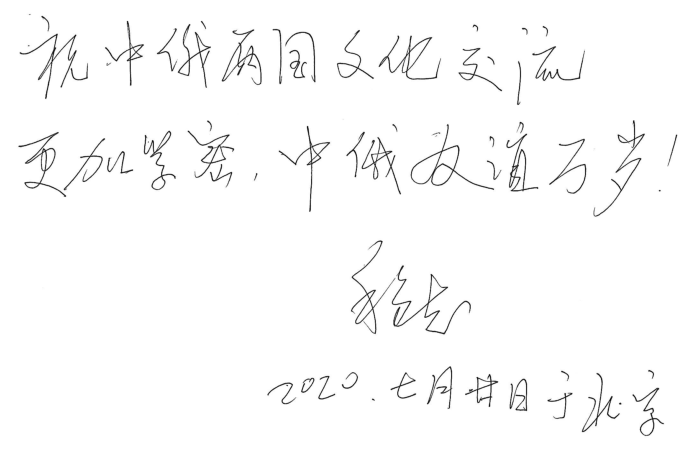 祝中俄两国文化交流
更加紧密,中俄友谊万岁!
2020.七月廿日于北京